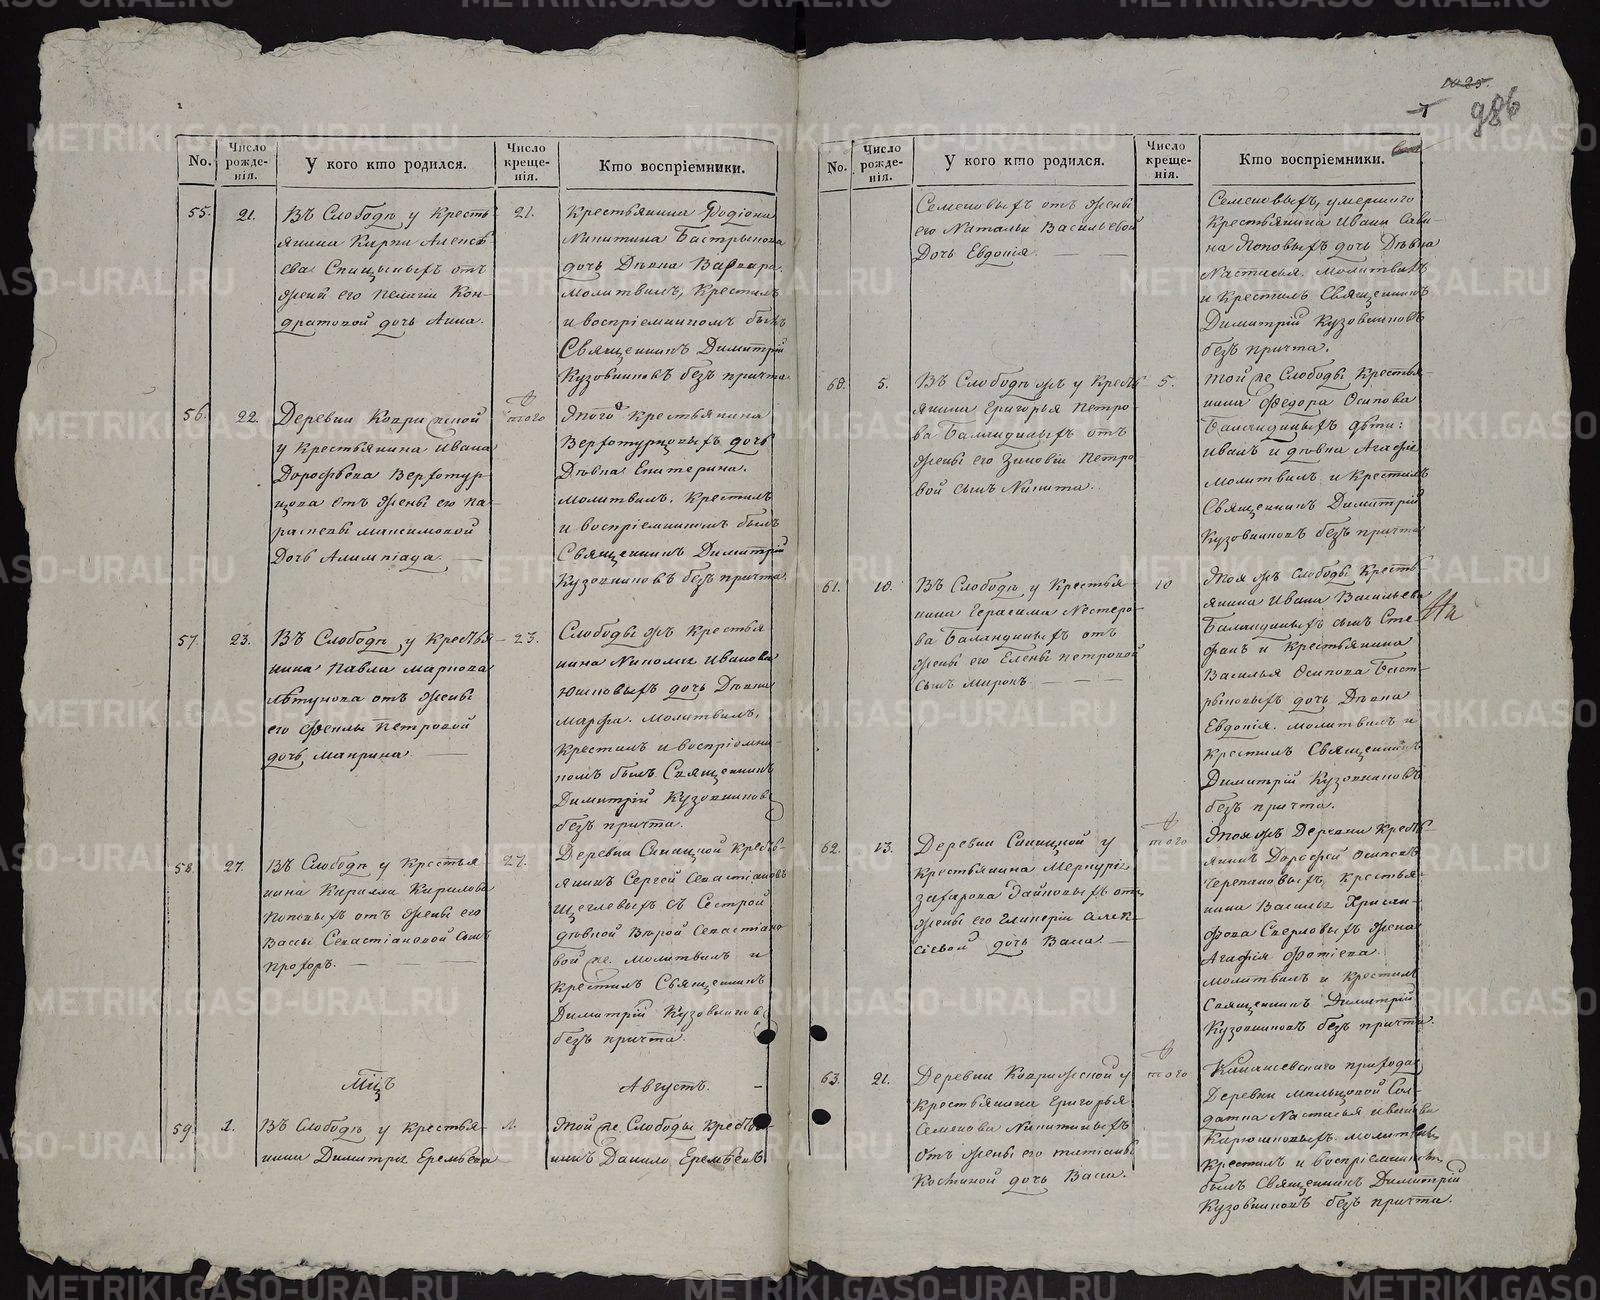 1025.
986
No.
Число рожде-нія.
У кого кто родился.
Число креще-нія.
Кто воспріемники.
55.
21.
Въ Слободѣ у Кресть-
янина Карпа Алексѣ-
ева Спицыныхъ отъ
жены его Пелагіи Кон-
дратовой дочь Анна.
21.
Крестьянина Родіона
Никитина Бастрыкова
дочь Дѣвка Варвара.
Молитвилъ, Крестилъ
и воспріемникомъ былъ
Священникъ Димитрій
Кузовниковъ безъ причта.
56.
22.
Деревни Ковриженой
у Крестьянина Ивана
Дорофѣева Верхотур-
цова отъ жены его Па-
расковы Максимовой
Дочь Алимпіада.
того
Этого Крестьянина
Верхотурцовыхъ дочь
Дѣвка Екатерина.
Молитвилъ, Крестилъ
и воспріемникомъ былъ
Священникъ Димитрій
Кузовниковъ безъ причта.
57.
23.
Въ Слободѣ у Крестья-
нина Павла Маркова
отъ жены
его Феклы Петровой
дочь Макрина.
23.
Слободы жъ Крестья
нина Николая Иванова
Юшковыхъ дочь Дѣвка
Марфа. Молитвилъ,
Крестилъ и воспріемни-
комъ былъ Священникъ
Димитрій Кузовниковъ
безъ причта.
58.
27.
Въ Слободѣ у Крестья
нина Кирилла Кирилова
Поповыхъ отъ жены его
Вассы Севастіановой сынъ
Прохоръ.
27.
Деревни Синицной Кресть-
янинъ Сергей Севастіановъ
Щегловыхъ съ Сестрой
дѣвкой Вѣрой Севастіано
вой же. Молитвилъ и
Крестилъ Священникъ
Димитрій Кузовниковъ
безъ причта.
Мцъ
Августъ.
59.
1.
Въ Слободѣ у Крестья-
нина Димитрія Еремѣева
1.
Этой же Слободы Крестья-
нинъ Данило Еремѣевъ
No.
Число рожде-нія.
У кого кто родился.
Число креще-нія.
Кто воспріемники.
Семеновыхъ отъ жены
его Натальи Васильевой
Дочь Евдокія.
Семеновыхъ, умершаго
Крестьянина Ивана Сави-
на Поповыхъ дочь Дѣвка
Настасья. Молитвилъ
и Крестилъ Священникъ
Димитрій Кузовниковъ
безъ причта.
60.
5.
Въ Слободѣ жъ у Кресть
янина Григорья Петро-
ва Баландиныхъ отъ
жены его Зиновіи Петро
вой сынъ Никита.
5.
Той же Слободы Крестья-
нина Федора Осипова
Баландиныхъ дѣти:
Иванъ и дѣвка Агафія
Молитвилъ и Крестилъ
Священникъ Димитрій
Кузовниковъ безъ причта
61.
10.
Въ Слободѣ у Крестья-
нина Герасима Нестеро-
ва Баландиныхъ отъ
жены его Елены Петровой
сынъ Миронъ.
10
Тоя жъ Слободы Кресть
янина Ивана Васильева
Баландиныхъ сынъ Сте-
фанъ и Крестьянина
Василья Осипова Баст-
рыковыхъ дочь Дѣвка
Евдокія. Молитвилъ и
Крестилъ Священникъ
Димитрій Кузовниковъ
безъ причта.
62.
13.
Деревни Синицной у
Крестьянина Меркурія
Захарова отъ
жены его Гликеріи Алек-
сіевой дочь Васса.
того
Тоя жъ Деревни Кресть-
янинъ Дорофей Осиповъ
Черепановыхъ, Крестья-
нина Василья Хрисан-
фова Сверловыхъ жена
Агафія Фотіева.
Молитвилъ и Крестилъ
Священникъ Димитрій
Кузовниковъ безъ причта.
63.
21.
Деревни Ковриженой у
Крестьянина Григорья
Семенова Никитиныхъ
Отъ жены его Татіаны
Костиной дочь Васса.
того
прихода
Деревни Мальцовой Сол-
датка Настасья Иванова
Кирюшковыхъ. Молитвилъ,
Крестилъ и воспріемникомъ
былъ Священникъ Димитрій
Кузовниковъ безъ причта.
METRIKI.GASO-URAL.RU